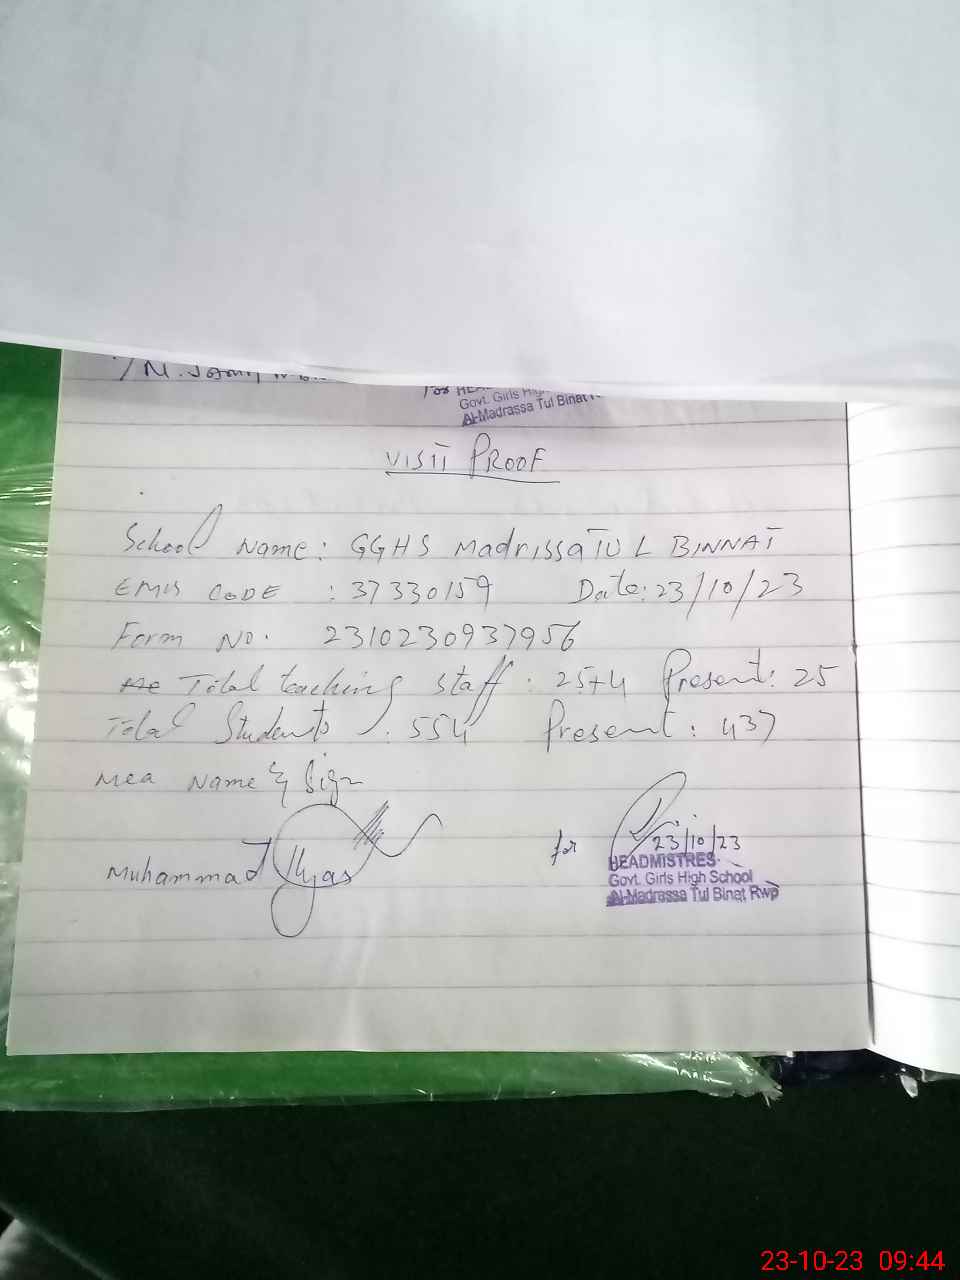 M. Jamil
For HEAD
Govt. Girls High
Al-Madrassa Tul Binat
VISIT PROOF
School Name: GGHS MadrissaTUL BINNAT
EMIS CODE : 37330159 Date: 23/10/23
Form NO. 2310230937956
Total teaching staff : 25+4 Present: 25
Total Students : 554 Present : 437
Mea Name & Sign
Muhammad Ilyas
for 23/10/23
HEADMISTRES
Govt. Girls High School
Al-Madrassa Tul Binat Rwp
23-10-23 09:44